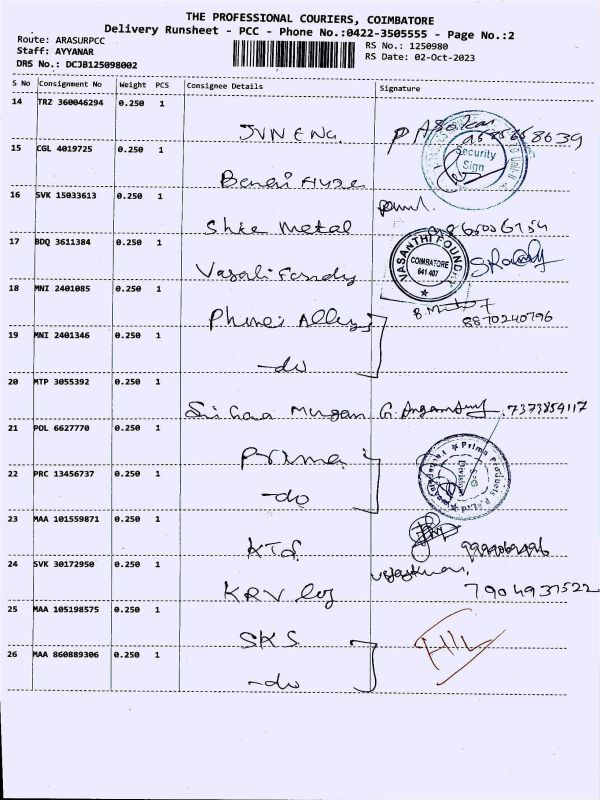 THE PROFESSIONAL COURIERS, COIMBATORE
Delivery Runsheet - PCC - Phone No.:0422-3505555 - Page No.:2
Route: ARASURPCC
RS No.: 1250980
Staff: AYYANAR
RS Date: 02-Oct-2023
DRS No.: DCJB125098002
S No Consignment No Weight PCS Consignee Details Signature
14 TRZ 360046294 0.250 1
JVN ENG.
15 CGL 4019725 0.250 1
Security
Sign
16 SVK 15033613 0.250 1
Shree Metal
17 BDQ 3611384 0.250 1
VASANTHI FOUNDRY
COIMBATORE
641 407
18 MNI 2401085 0.250 1
8870240796
19 MNI 2401346 0.250 1
-do
20 MTP 3055392 0.250 1
7373859117
21 POL 6627770 0.250 1
Prima
Prima Products P Ltd
Division
22 PRC 13456737 0.250 1
-do
23 MAA 101559871 0.250 1
24 SVK 30172950 0.250 1
KRV
7904937522
25 MAA 105198575 0.250 1
SKS
26 MAA 860889306 0.250 1
-do